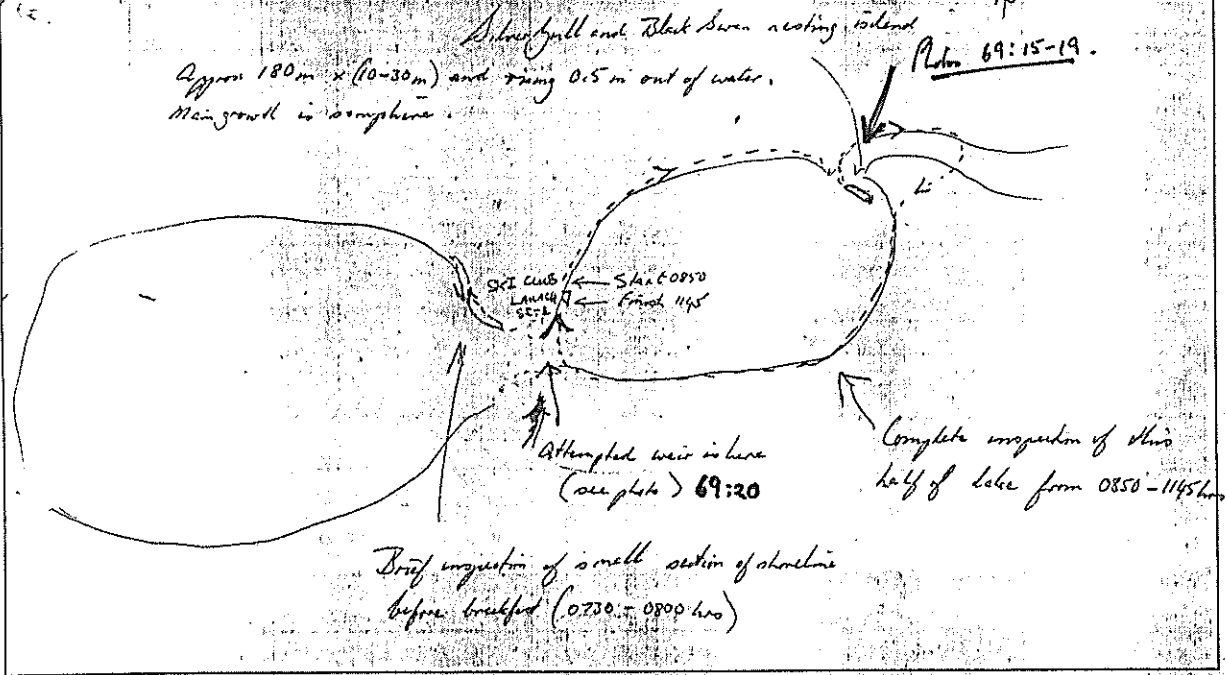 Silver Gull and Black Swan nesting island
Approx 180m x (10-30m) and rising 0.5 m out of water.
Main growth is samphire.
Photos 69:15-19.
SKI CLUB
Start 0850
Finish 1145
Attempted weir is here
(see photo) 69:20
Complete inspection of this
half of lake from 0850-1145 hrs
Brief inspection of small section of shoreline
before breakfast (0730-0800 hrs)